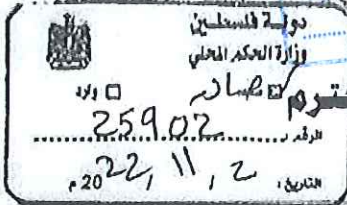 دولة فلسطين
وزارة الحكم المحلي
☑ صادر ☐ وارد
ترم
الرقم: 25902
التاريخ: 2022, 11, 2م